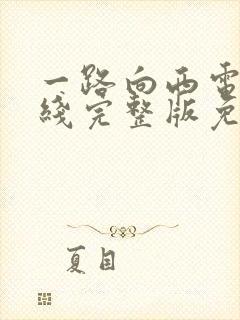 一路向西電
綫完整版免
夏目